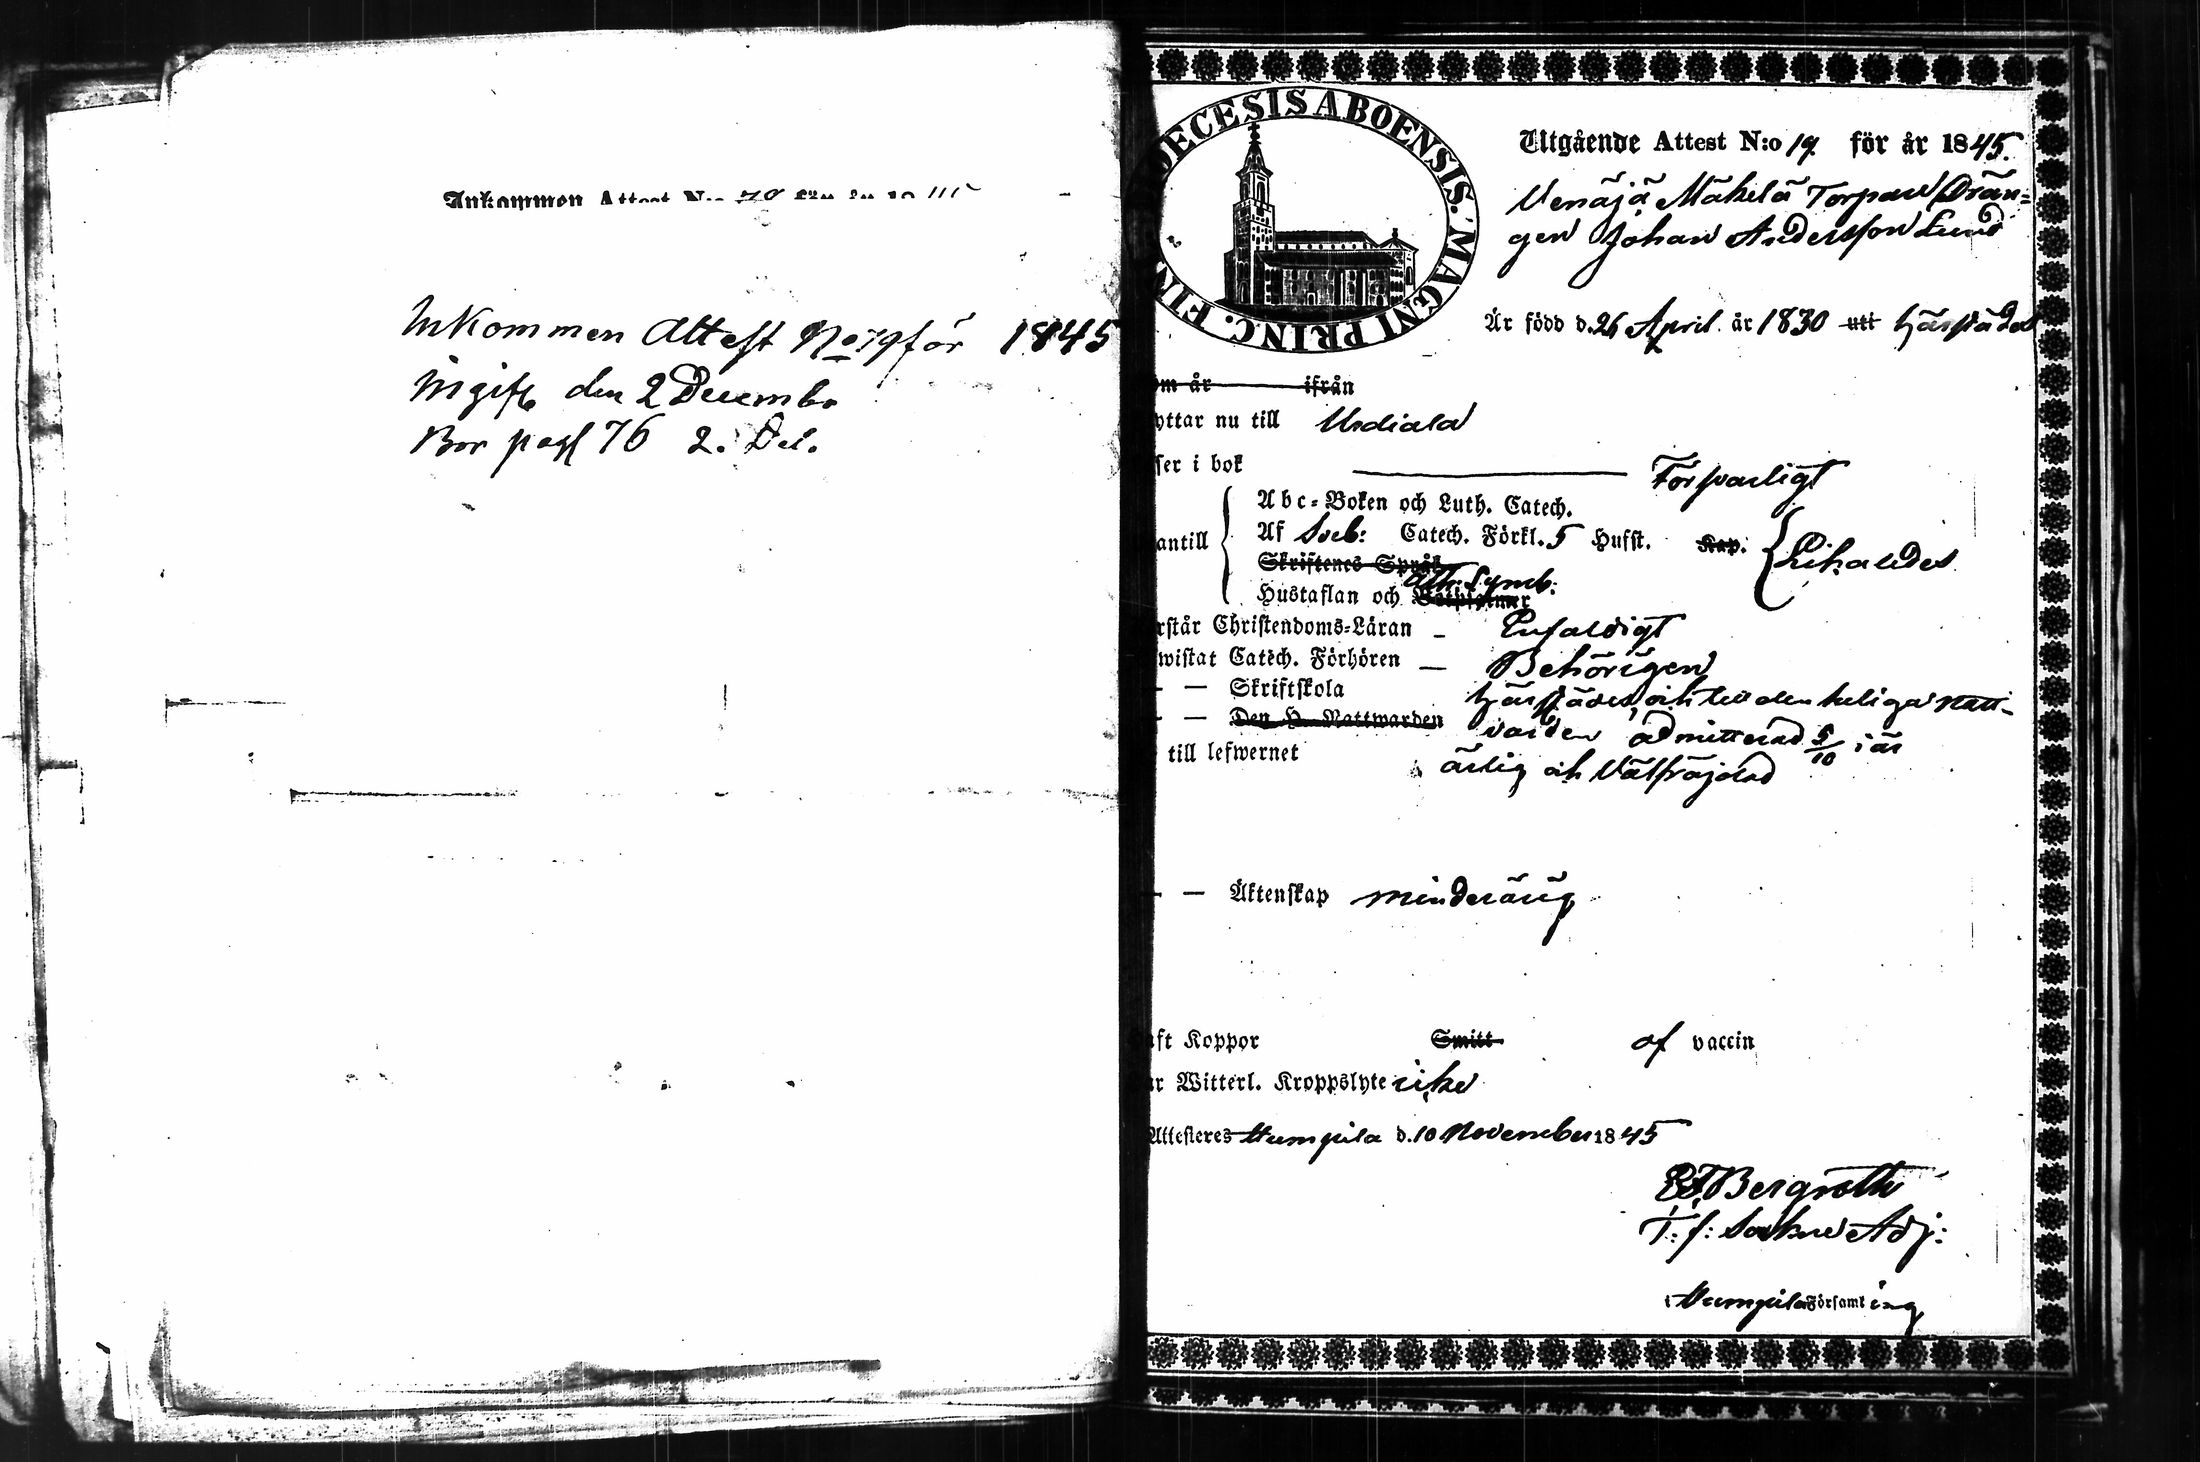 Inkommen Attest N:o 79 för år 18
Inkommen Attest No 79 för 1845
Ingift den 2 Decembr
Bor pag 76 2. Del.
DECESIS ABOENSIS. MAGNI PRINC. FIN
Utgående Attest N:o 19 för år 1845.
Venäjä Mäkelä Torpare Drän=
gen Johan Andersson Lund
Är född d. 26 April år 1830 utt härstädes
om år ifrån
yttar nu till Urdiala
ser i bok Försvarligt
Abc=Boken och Luth. Catech.
antill Af Sveb: Catech. Förkl. 5 Hufst. Kap. Likaledes
Skriftenes Språk
Ath: Symb:
Hustaflan och
rstår Christendoms=Läran Enfaldigt
wistat Catech. Förhören Behörigen
— — Skriftskola härstädes, och till den heliga natt-
— — Den H. Nattwarden varden admitterad 5/10 i år
till lefwernet ärlig och Välfräjdad
— — Äktenskap minderårig
aft Koppor Smitt af vaccin
ar Witterl. Kroppslyte icke
Attesteres Humpila d. 10 November 1845
Bergroth
T: f: Sockne Adj:
i Humpila Församling